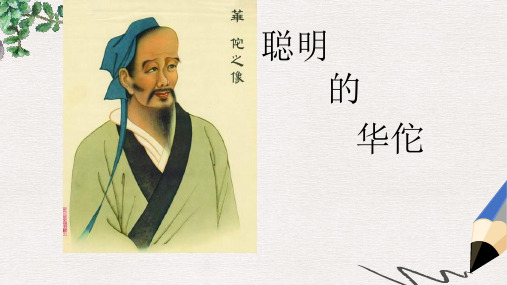 華佗之像
聪明
的
华佗